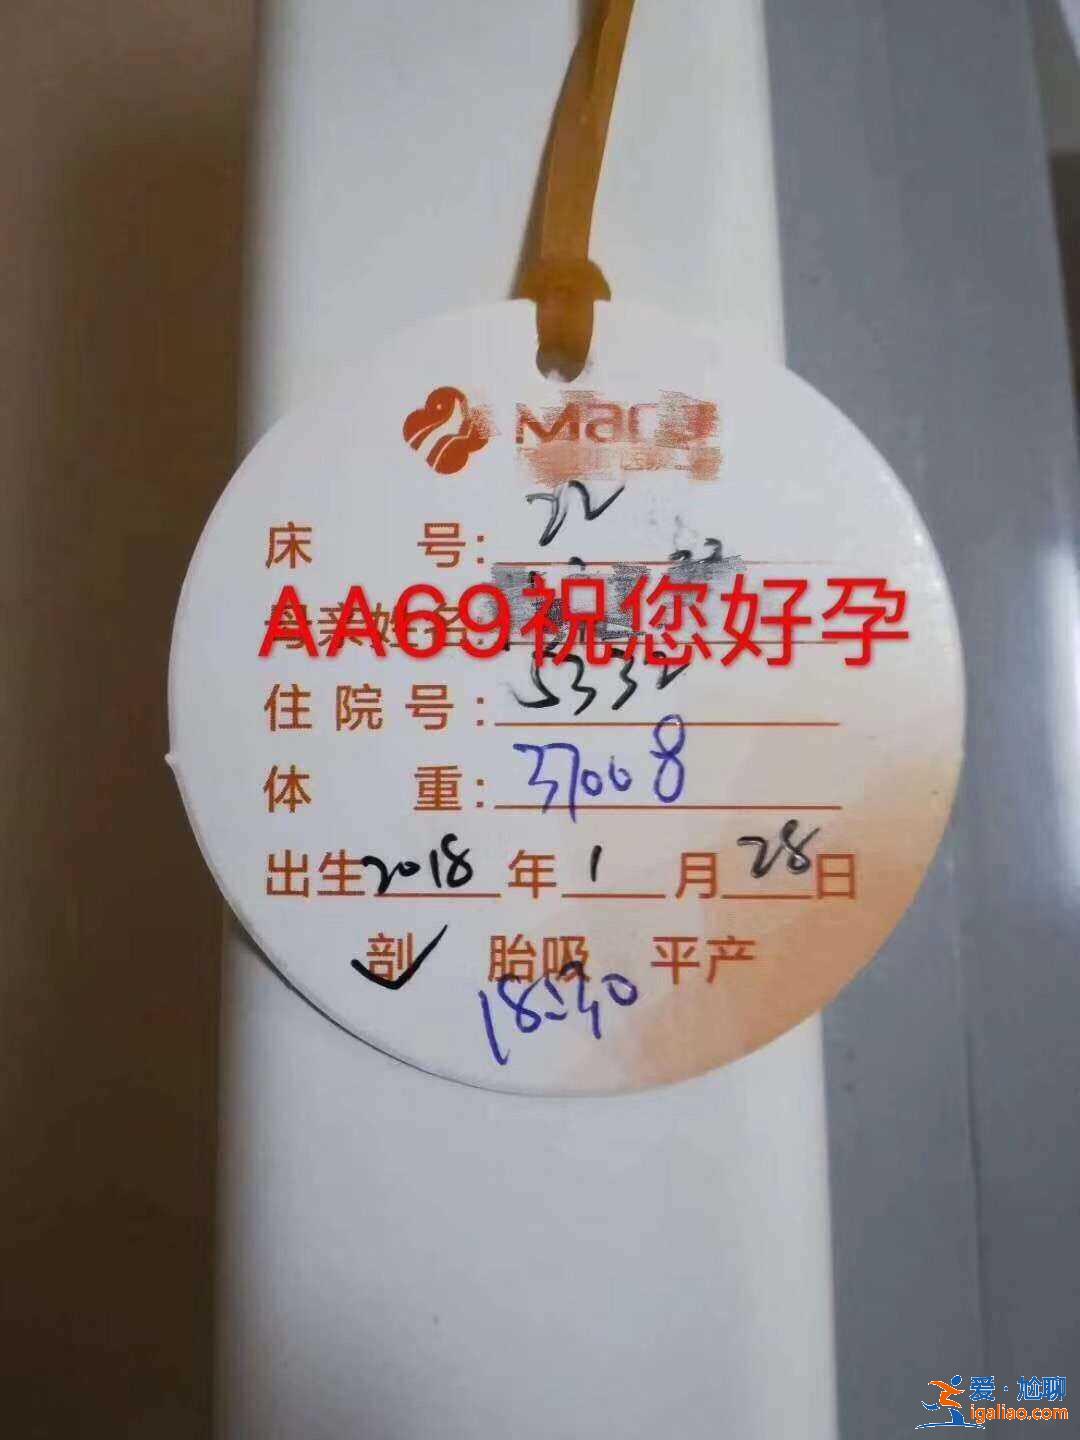 床 号: 22
母亲姓名:
AA69祝您好孕
住院号: 5332
体 重: 3700g
出生2018年1月28日
剖 胎吸 平产
18:40
爱·尬聊
igaliao.com